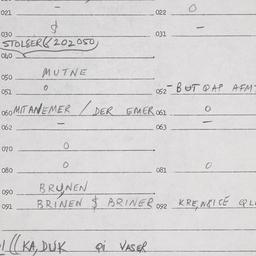 021 - 022 O
030 $ 031 -
STOLGER (202050)
040
050 MUTNE
051 O 052 - BUT QAP AFMT
060 MITANEMER / DER EMER 061 O
062 - 063 -
070 O
080 O 081 O
090 BRUNEN
091 BRINEN $ BRINER 092 KRE,NRICÉ QLL
KA,DUK QI VASER